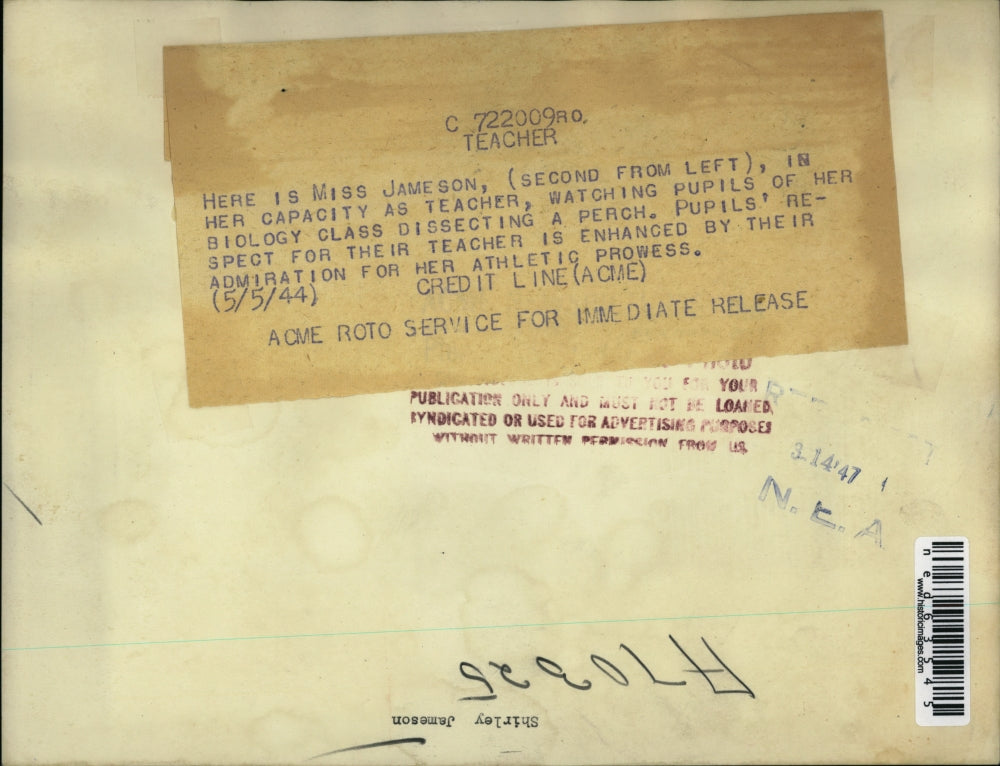 C 722009RO.
TEACHER
HERE IS MISS JAMESON, (SECOND FROM LEFT), IN
HER CAPACITY AS TEACHER, WATCHING PUPILS OF HER
BIOLOGY CLASS DISSECTING A PERCH. PUPILS' RE-
SPECT FOR THEIR TEACHER IS ENHANCED BY THEIR
ADMIRATION FOR HER ATHLETIC PROWESS.
(5/5/44) CREDIT LINE(ACME)
ACME ROTO SERVICE FOR IMMEDIATE RELEASE
TO YOU FOR YOUR
PUBLICATION ONLY AND MUST NOT BE LOANED,
SYNDICATED OR USED FOR ADVERTISING PURPOSES
WITHOUT WRITTEN PERMISSION FROM US.
3-14'47
N.E.A
ned63545
www.historicimages.com
Shirley Jameson